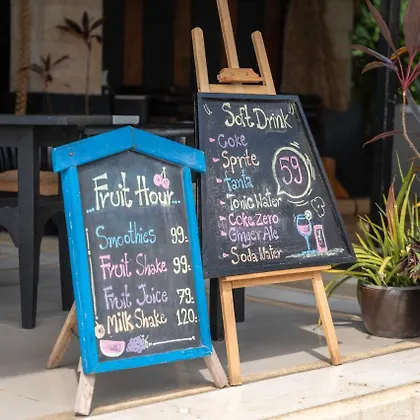 ..Fruit Hour..
Smoothies 99.-
Fruit Shake 99.-
Fruit Juice 79.-
Milk Shake 120.-
Soft Drink
Coke
Sprite
Fanta
Tonic Water
Coke Zero
Ginger Ale
Soda Water
59